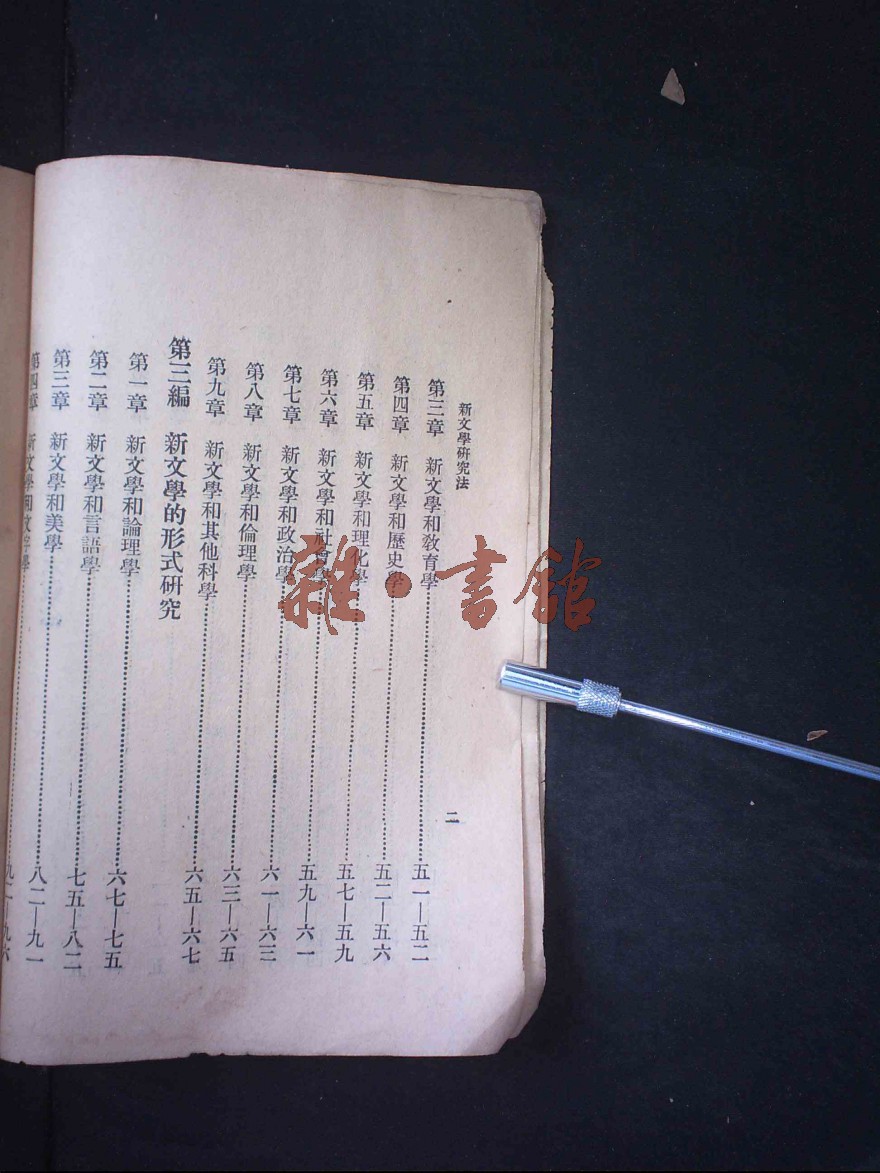 新文學研究法
二
第三章 新文學和教育學……五一—五二
第四章 新文學和歷史學……五二—五六
第五章 新文學和理化學……五七—五九
第六章 新文學和社會學……五九—六一
第七章 新文學和政治學……六一—六三
第八章 新文學和倫理學……六三—六五
第九章 新文學和其他科學……六五—六七
第三編 新文學的形式研究
第一章 新文學和論理學……六七—七五
第二章 新文學和言語學……七五—八二
第三章 新文學和美學……八二—九一
第四章 新文學和文字學……九二—九六
雜·書館